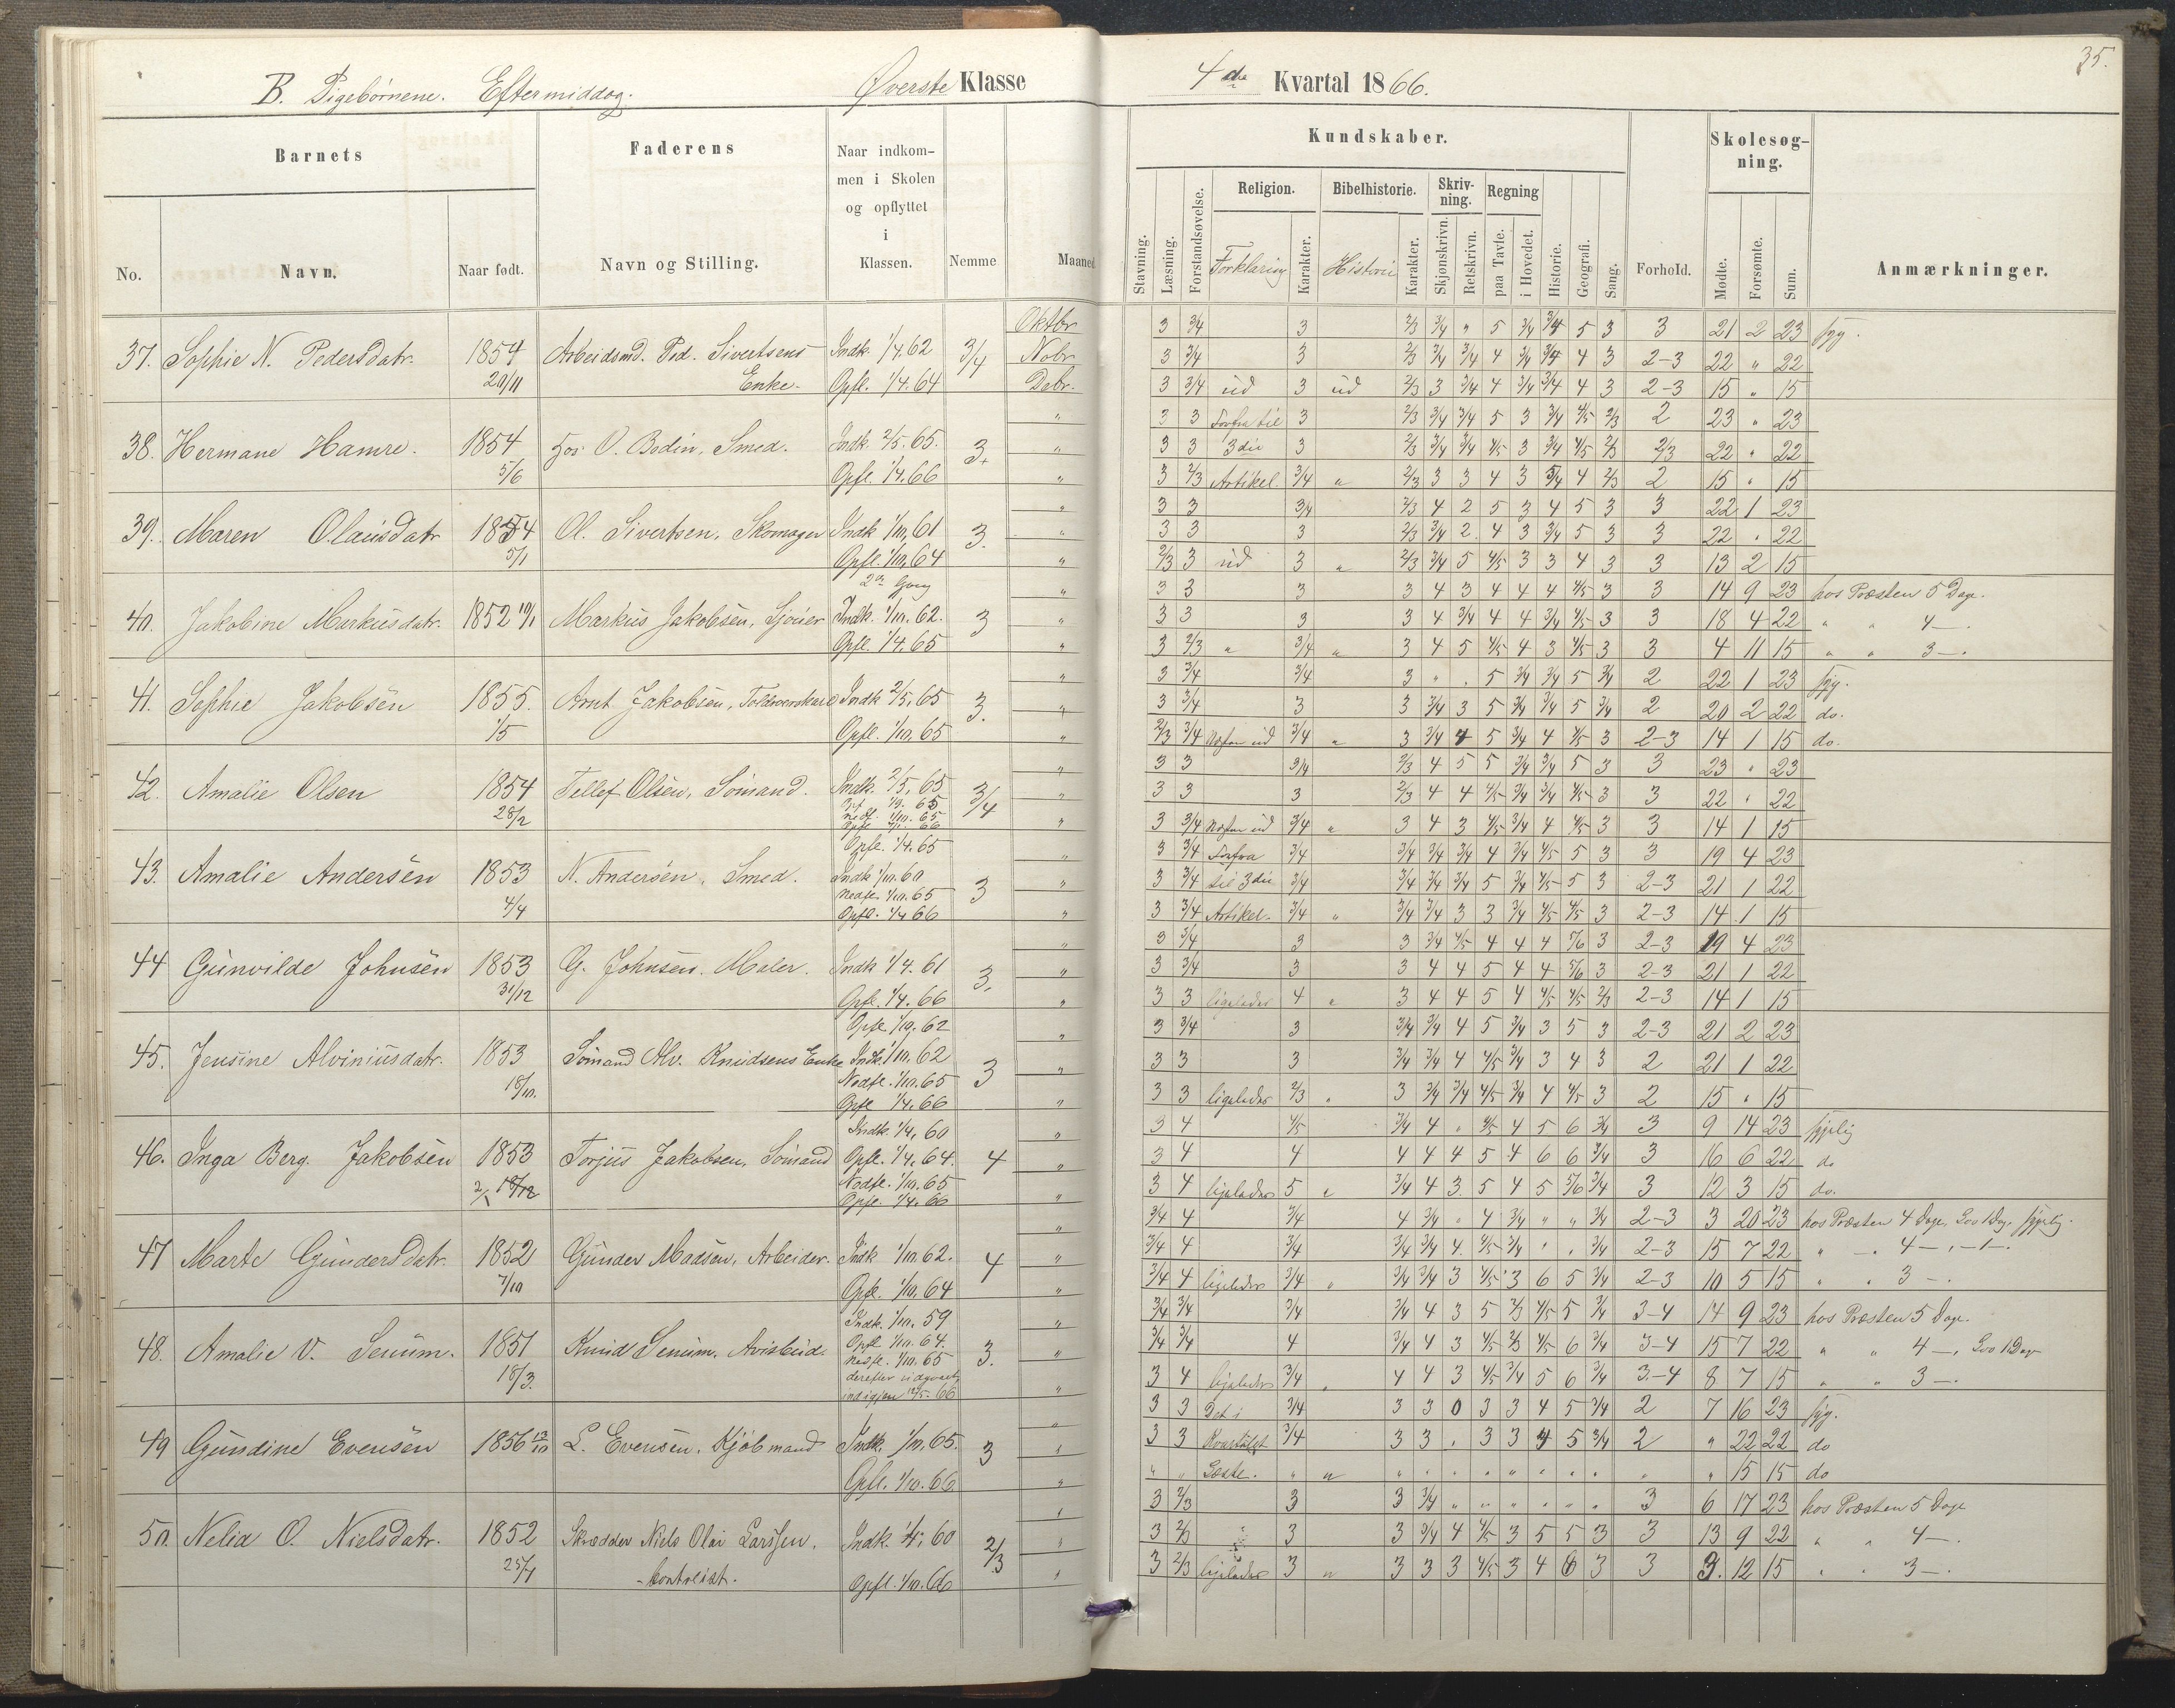 B. Pigebørnene. Eftermiddag. Øverste Klasse
4de Kvartal 1866.
35.
Barnets
Faderens
Naar indkom-
men i Skolen
og opflyttet
i
Klassen.
No.
Navn.
Naar født.
Navn og Stilling.
Nemme
Maaned
Kundskaber.
Skolesøg-
ning.
Religion. Bibelhistorie. Skriv-
ning. Regning
Stavning. Læsning. Forstandsøvelse. Forklaring Karakter. Historie Karakter. Skjønskrivn. Retskrivn. paa Tavle. i Hovedet. Historie. Geografi. Sang. Forhold. Mødte. Forsømte. Sum. Anmærkninger.
Oktbr 3 3/4 3 2/3 3/4 " 5 3/4 3/4 5 3 3 21 2 23 syg.
37. Sophie N. Pedersdatr. 1854 Arbeidsmd. Ped. Sivertsens Indk. 1/4.62 3/4 Nobr. 3 3/4 3 2/3 3/4 3/4 4 3/4 3/4 4 3 2-3 22 " 22
20/11 Enke. Opfl. 1/4.64 Debr. 3 3/4 ud 3 ud 2/3 3 3/4 4 3/4 3/4 4 3 2-3 15 " 15
" 3 3 Forfra til 3 2/3 3/4 3/4 5 3 3/4 4/5 2/3 2 23 " 23
38. Hermane Hamre. 1854 hos O. Bodin, Smed. Indk. 2/5.65. 3. " 3 3 3die 3 2/3 3/4 3/4 4/5 3 3/4 4/5 2/3 2/3 22 " 22
5/6 Opfl. 1/4.66 " 3 2/3 Artikel. 3/4 " 2/3 3 3 4 3 3/4 4 2/3 2 15 " 15
" 3 3 3/4 2/3 4 2 5 3 4 5 3 3 22 1 23
39. Maren Olausdatr 1854 Ol. Sivertsen, Skomager Indk 1/10.61 3. " 3 3 3 2/3 3/4 2 4 3 3/4 5 3 3 22 " 22
5/1 Opfl. 1/10.64 " 2/3 3 ud 3 " 2/3 3/4 5 4/5 3 3 4 3 3 13 2 15
2den Gang " 3 3 3 3 4 3 4 4 4 4/5 3 3 14 9 23 hos Præsten 5 Dage.
40. Jakobine Markusdatr. 1852 19/1 Markus Jakobsen, Sjouer Indk. 1/10.62. 3 " 3 3 3 3 4 3/4 4 4 3/4 4/5 3 3 18 4 22 " " 4 —.
Opfl. 1/4.65 " 3 2/3 " 3/4 " 3 4 5 4/5 4 3 4/5 3 3 4 11 15 " " 3 —.
" 3 3/4 3/4 3 " . 5 3/4 3/4 5 3/4 2 22 1 23 syg.
41. Sophie Jakobsen 1855. Arnt Jakobsen, Indk 2/5.65 3. " 3 3/4 3 3 3/4 3 5 3/4 3/4 5 3/4 2 20 2 22 do.
1/5 Opfl. 1/10.65 " 2/3 3/4 ud 3/4 " 3 3/4 4 5 3/4 4 4/5 3 2-3 14 1 15 do.
" 3 3 3/4 2/3 4 5 5 3/4 3/4 5 3 3 23 " 23
42. Amalie Olsen 1854 Tellef Olsen, Sömand. Indk. 2/5.65 3/4 " 3 3 3 2/3 4 4 4/5 3/4 3/4 4/5 3 3 22 " 22
28/2 Nedfl. 1/10.65 " 3 3/4 ud 3/4 " 3 4 3 4/5 3/4 4 4/5 3 3 14 1 15
Opfl. 1/4.65 " 3 3/4 Forfra 3/4 3/4 3/4 3/4 4 3/4 4/5 5 3 3 19 4 23
43. Amalie Andersen 1853 N. Andersen, Smed. Indk 1/10.60 3 " 3 3/4 til 3die 3/4 3/4 3/4 3/4 5 3/4 4/5 5 3 2-3 21 1 22
4/4 Nedfl. 1/10.65
Opfl. 1/4 66 " 3 3/4 Artikel. 3/4 " 3/4 3/4 3 3 3/4 4/5 4/5 3 2-3 14 1 15
" 3 3/4 3 3 3/4 4/5 4 4 4 5/6 3 2-3 19 4 23
44 Gunvilde Johnsen 1853 G. Johnsen. Maler. Indk 1/4.61 3. " 3 3/4 3 3 4 4 5 4 4 5/6 3 2-3 21 1 22
31/12 Opfl. 1/4.66 " 3 3 ligeledes 4 " 3 4 4 5 4 4/5 4/5 2/3 2-3 14 1 15
Opfl. 1/10.62 " 3 3/4 3 3/4 3/4 4 5 3/4 3 5 3 2-3 21 2 23
45. Jensine Alviniusdatr. 1853 Sömand Alv. Knudsens Enke Indk. 1/10.62 3 " 3 3 3 3/4 3/4 4 4/5 3/4 3 4 3 2 21 1 22
18/10. Nedfl. 1/10.65
Opfl 1/4.66 " 3 3 ligeledes 2/3 " 3 3/4 3/4 4/5 3/4 4 4/5 3 2 15 " 15
Indk. 1/4.60 " 3 4 4/5 3/4 4 " 4/5 4 5 6 3/4 3 9 14 23 sygelig
46. Inga Berg. Jakobsen 1853 Torjus Jakobsen, Sömand Opfl. 1/4.64. 4 " 3 4 4 4 4 4 5 4 6 6 3/4 3 16 6 22 do
Nedfl. 1/10.65
Opfl. 1/4.66 " 3 4 ligeledes 5 " 3/4 4 3. 5 4 5 5/6 3/4 3 12 3 15 do.
" 3/4 4 3/4 4 3/4 " 4 3/4 " " 3/4 2-3 3 20 23 hos Præsten 4 Dage,
47 Marte Gundersdatr. 1852 Gunder Madsen, Arbeider. Indk 1/10.62. 4 " 3/4 4 3/4 3/4 3/4 4. 4/5 3/4 " " 3/4 2-3 15 7 22 " — 4 —
7/10 Opfl. 1/10.64 " 3/4 4 ligeledes 3/4 " 3/4 3/4 3 4/5 3 6 5 3/4 2-3 10 5 15 " " 3 —.
Indk. 1/10.59 " 3/4 3/4 3/4 3/4 4 3 5 2/3 4/5 5 3/4 3-4 14 9 23 hos Præsten 5 Dage.
48. Amalie V. Senum. 1851 Knud Senum, Avisbud. Opfl 1/10.64. 3. " 3/4 3/4 4 3/4 4 3 4/5 2/3 4/5 6 3/4 3-4 15 7 22 " " 4 —,
18/3. Nedfl. 1/10.65
derefter udgaaet,
ind igjen 12/5.66 " 3 4 ligeledes 3/4 " 4 4 3 4/5 3/4 5 6 3/4 3-4 8 7 15 " " 3 —.
" 3 3 Det i 3/4 3 3 0 3 3 4 5 3/4 2 7 16 23 syg.
49 Gundine Evensen 1856 12/10 L. Evensen, Kjöbmand Indk. 1/10.65. 3 " 3 3 Kvartalet 3/4 3 3 . 3 3 4 5 3/4 2 " 22 22 do
Opfl. 1/10.66 " " " Læste. " " " " " " " " " " " " 15 15 do
" 3 2/3 3 3 3/4 " " " " " " 3 6 17 23 hos Præsten 5 Dage
50. Nelia O. Nielsdatr. 1852 Skrædder Niels Olai Larssen, Indk. 1/4.60 2/3 " 3 2/3 3 3 3/4 4 4/5 3 5 5 3 3 13 9 22 " " 4 —.
25/4 Kontrolist. Opfl. 1/10.66 " 3 2/3 ligeledes 3 " 3 3 3 4/5 3 4 6 3 3 3. 12 15 " " 3 —.